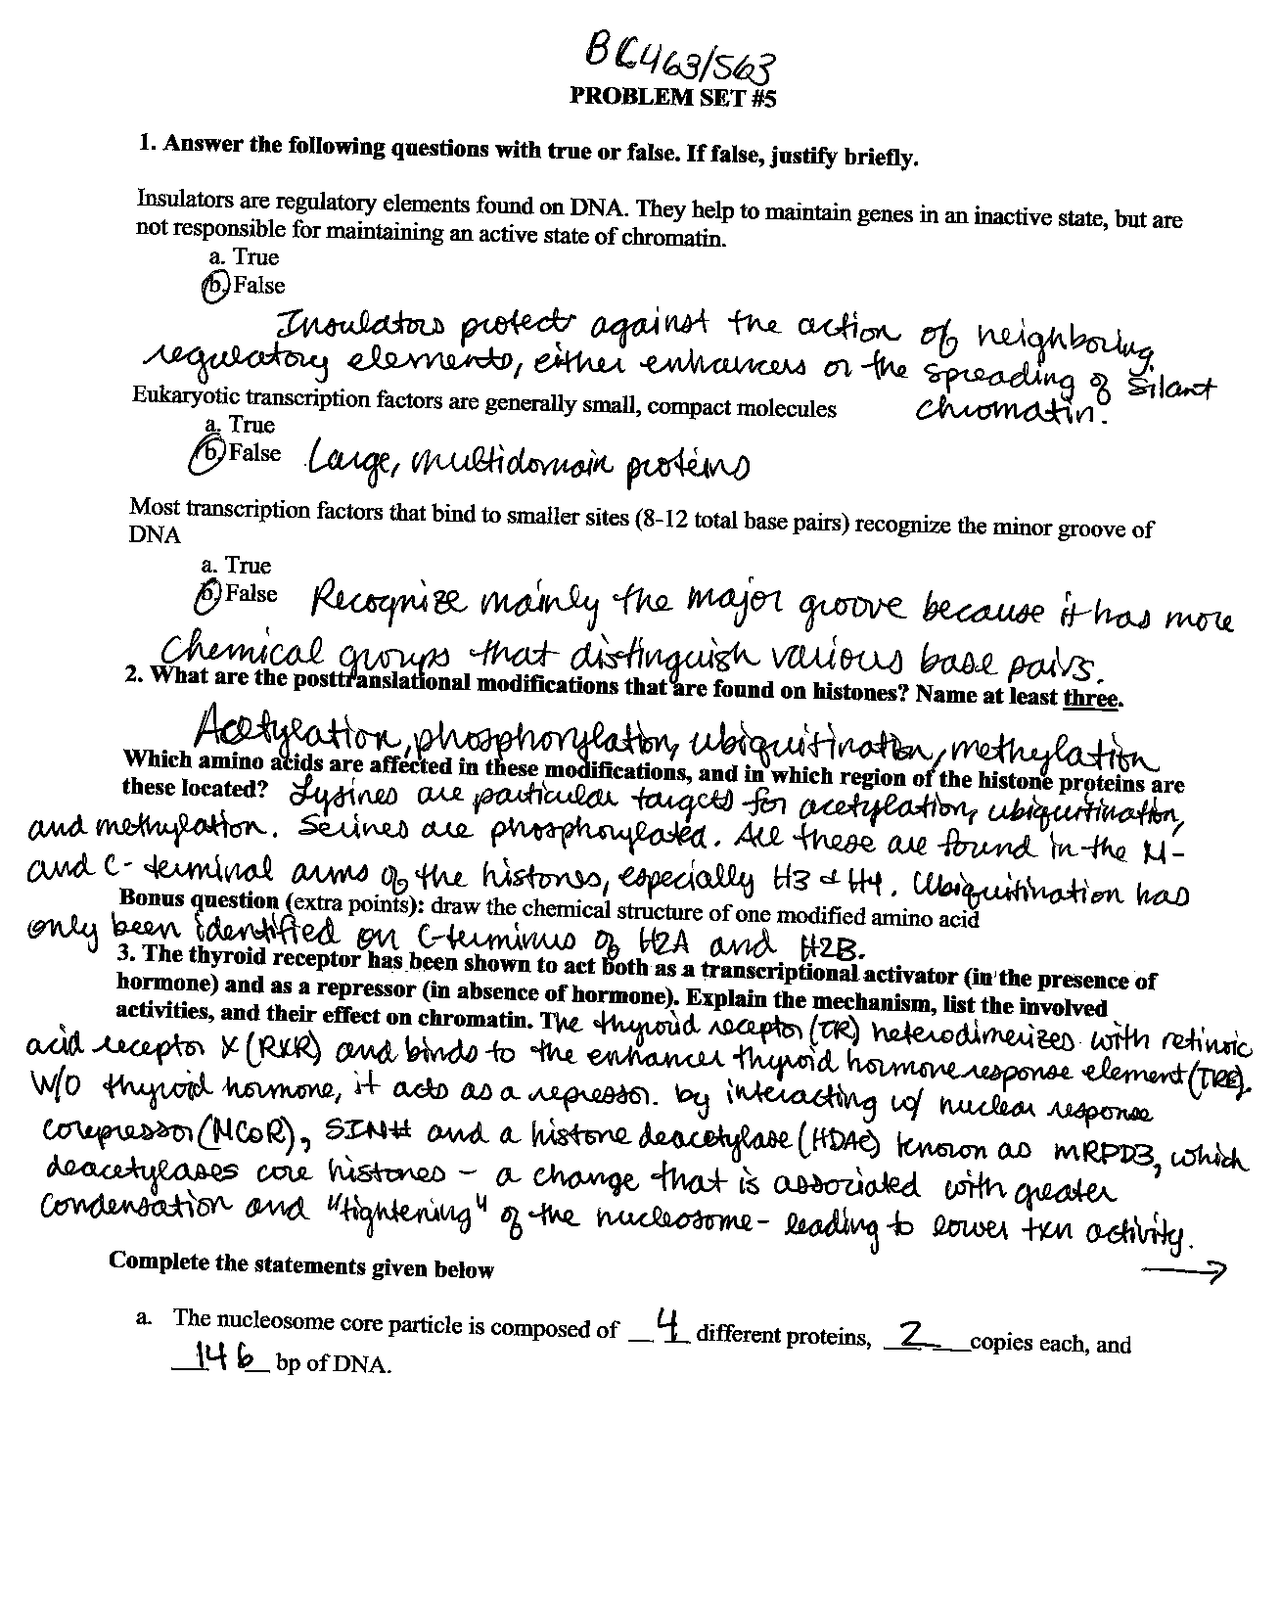 BC463/563
PROBLEM SET #5
1. Answer the following questions with true or false. If false, justify briefly.
Insulators are regulatory elements found on DNA. They help to maintain genes in an inactive state, but are
not responsible for maintaining an active state of chromatin.
a. True
b. False
Insulators protect against the action of neighboring
regulatory elements, either enhancers or the spreading of silant
chromatin.
Eukaryotic transcription factors are generally small, compact molecules
a. True
b. False Large, multidomain proteins
Most transcription factors that bind to smaller sites (8-12 total base pairs) recognize the minor groove of
DNA
a. True
b. False Recognize mainly the major groove because it has more
chemical groups that distinguish various base pairs.
2. What are the posttranslational modifications that are found on histones? Name at least three.
Acetylation, phosphorylation, ubiquitination, methylation
Which amino acids are affected in these modifications, and in which region of the histone proteins are
these located? Lysines are particular targets for acetylation, ubiquitination,
and methylation. Serines are phosphorylated. All these are found in the N-
and C-terminal arms of the histones, especially H3 & H4. Ubiquitination has
Bonus question (extra points): draw the chemical structure of one modified amino acid
only been identified on C-terminus of H2A and H2B.
3. The thyroid receptor has been shown to act both as a transcriptional activator (in the presence of
hormone) and as a repressor (in absence of hormone). Explain the mechanism, list the involved
activities, and their effect on chromatin. The thyroid receptor (TR) heterodimerizes with retinoic
acid receptor X (RXR) and binds to the enhancer thyroid hormone response element (TRE).
W/O thyroid hormone, it acts as a repressor. by interacting w/ nuclear response
corepressor (NCoR), SIN# and a histone deacetylase (HDAC) known as mRPD3, which
deacetylases core histones - a change that is associated with greater
condensation and "tightening" of the nucleosome - leading to lower txn activity.
→
Complete the statements given below
a. The nucleosome core particle is composed of 4 different proteins, 2 copies each, and
146 bp of DNA.